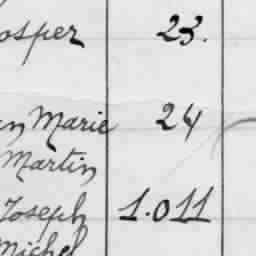 osper 23.
an Marie 24
Martin
Joseph 1.011
Michel